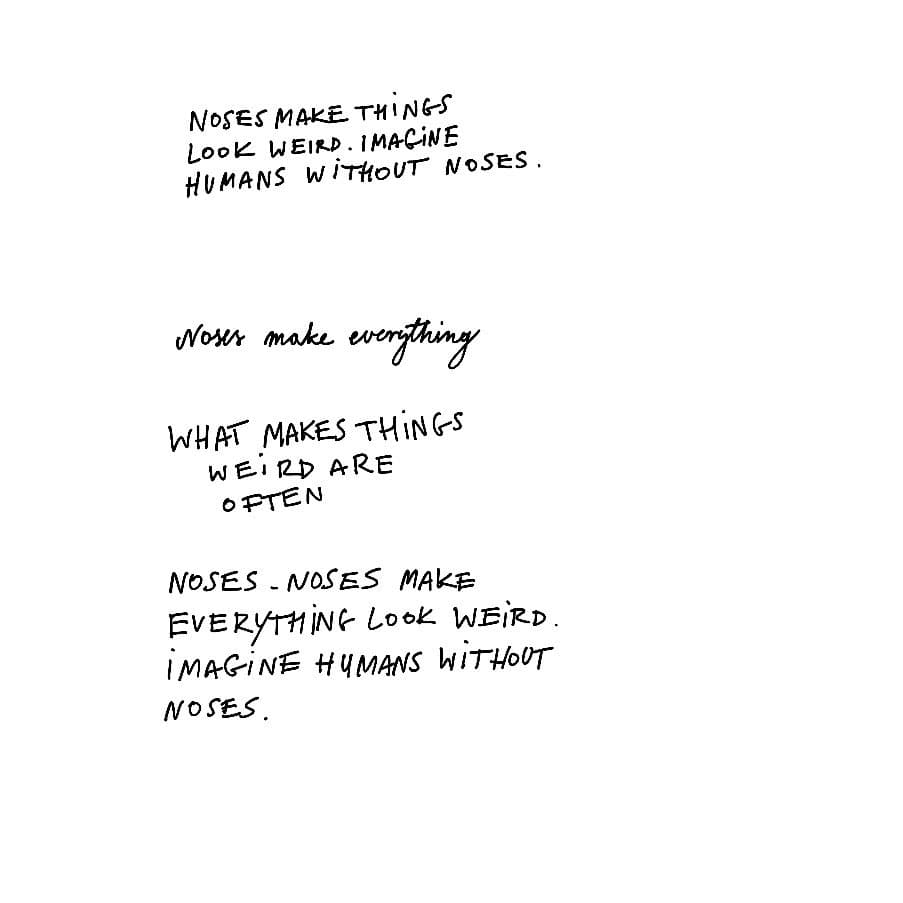 NOSES MAKE THINGS
LOOK WEIRD. IMAGINE
HUMANS WITHOUT NOSES.
Noses make everything
WHAT MAKES THINGS
WEIRD ARE
OFTEN
NOSES - NOSES MAKE
EVERYTHING LOOK WEIRD.
IMAGINE HUMANS WITHOUT
NOSES.